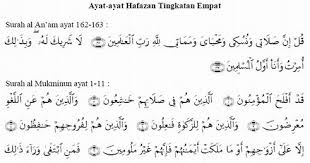 Ayat-ayat Hafazan Tingkatan Empat
Surah al An'am ayat 162-163 :
قُلْ إِنَّ صَلَاتِي وَنُسُكِي وَمَحْيَايَ وَمَمَاتِي لِلَّهِ رَبِّ الْعَالَمِينَ ۝ لَا شَرِيكَ لَهُ ۖ وَبِذَٰلِكَ
أُمِرْتُ وَأَنَا أَوَّلُ الْمُسْلِمِينَ ۝
Surah al Mukminun ayat 1-11 :
قَدْ أَفْلَحَ الْمُؤْمِنُونَ ۝ الَّذِينَ هُمْ فِي صَلَاتِهِمْ خَاشِعُونَ ۝ وَالَّذِينَ هُمْ عَنِ اللَّغْوِ
مُعْرِضُونَ ۝ وَالَّذِينَ هُمْ لِلزَّكَاةِ فَاعِلُونَ ۝ وَالَّذِينَ هُمْ لِفُرُوجِهِمْ حَافِظُونَ ۝
إِلَّا عَلَىٰ أَزْوَاجِهِمْ أَوْ مَا مَلَكَتْ أَيْمَانُهُمْ فَإِنَّهُمْ غَيْرُ مَلُومِينَ ۝ فَمَنِ ابْتَغَىٰ وَرَاءَ ذَٰلِكَ